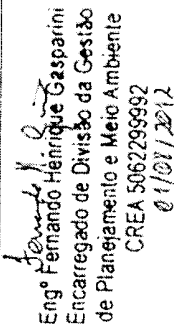 Engº Fernando Henrique Gasparini
Encarregado de Divisão da Gestão
de Planejamento e Meio Ambiente
CREA 5062299992